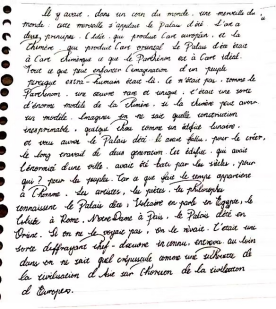 Il y avait, dans un coin du monde, une merveille du
monde : cette merveille s'appelait le Palais d'été. L'art a
deux principes, l'Idée, qui produit l'art européen, et la
Chimère, qui produit l'art oriental. Le Palais d'été était
à l'art chimérique ce que le Parthénon est à l'art idéal.
Tout ce que peut enfanter l'imagination d'un peuple
presque extra-humain était là. Ce n'était pas, comme le
Parthénon, une œuvre rare et unique ; c'était une sorte
d'énorme modèle de la chimère, si la chimère peut avoir
un modèle. Imaginez on ne sait quelle construction
inexprimable, quelque chose comme un édifice lunaire,
et vous aurez le Palais d'été. Il avait fallu, pour le créer,
le long travail de deux générations. Cet édifice, qui avait
l'énormité d'une ville, avait été bâti par les siècles, pour
qui ? pour les peuples. Car ce que fait le temps appartient
à l'homme. Les artistes, les poètes, les philosophes,
connaissaient le Palais d'été ; Voltaire en parle. en Egypte, le
Colisée à Rome, Notre-Dame à Paris, le Palais d'été en
Orient. Si on ne le voyait pas, on le rêvait. C'était une
sorte d'effrayant chef-d'œuvre inconnu, entrevu au loin
dans on ne sait quel crépuscule comme une silhouette de
la civilisation d'Asie sur l'horizon de la civilisation
d'Europe.